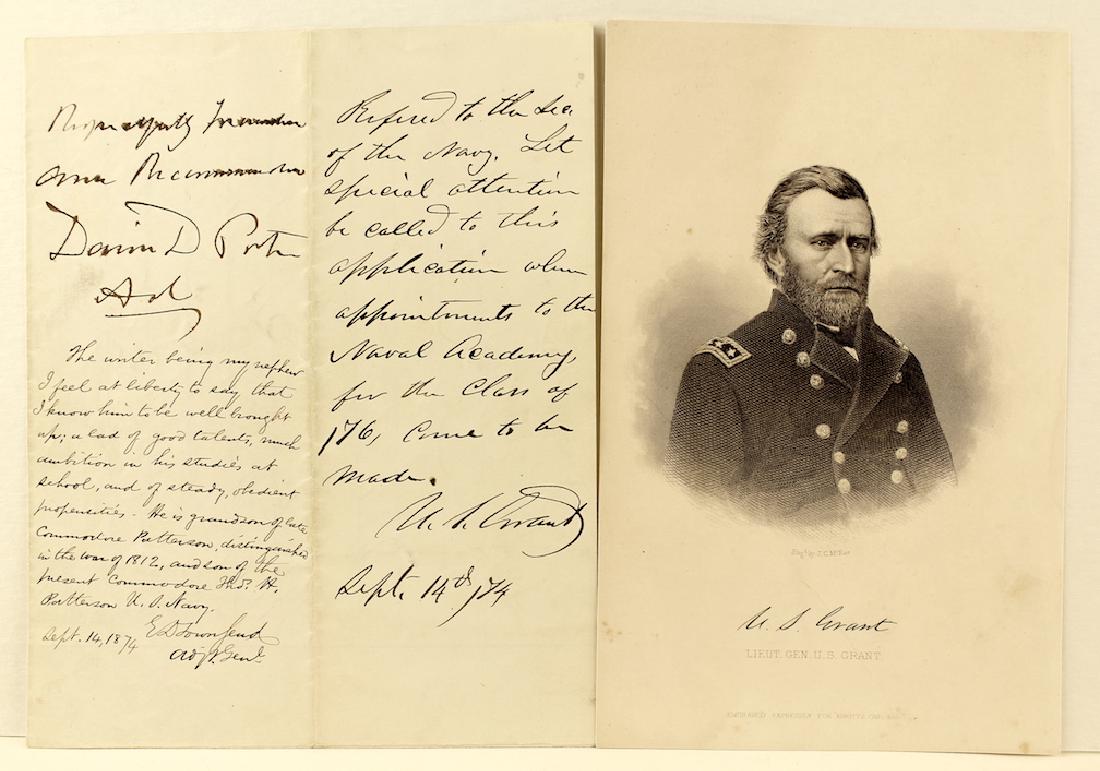 Respectfully
David D Porter
Adl
The writer being my nephew
I feel at liberty to say that
I know him to be well brought
up; a lad of good talents, much
ambition in his studies at
school, and of steady, obedient
propensities. He is grandson of late
Commodore Patterson, distinguished
in the war of 1812, and son of the
present Commodore Thos. H.
Patterson U.S. Navy.
Sept. 14, 1874
E D Townsend
Adjt. Genl.
Refered to the Sec.
of the Navy. Let
special attention
be called to this
application when
appointments to the
Naval Academy,
for the Class of
'76, come to be
made.
U. S. Grant
Sept. 14th /74
Eng'd by J.C.
U. S. Grant
LIEUT. GEN. U.S. GRANT.
ENGRAVED EXPRESSLY FOR ABBOTT'S